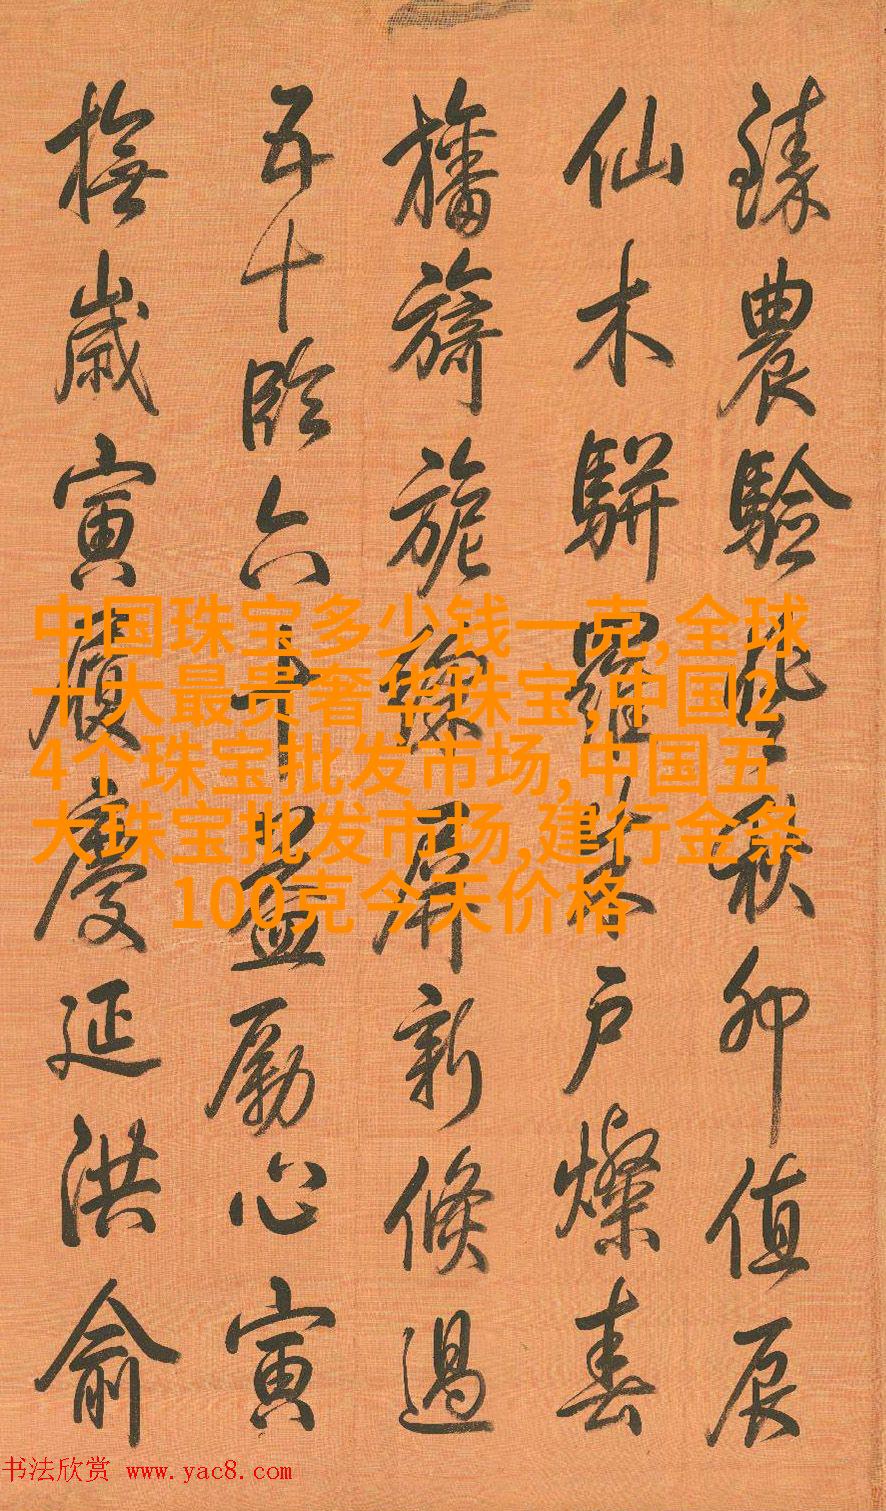 臻農驗秋卯值辰
仙木駢羅朱戶燦春
旛旖旎錦屏新倏過
五十臨六十益勵心寅
撫歲寅慶延洪俞
中国珠宝多少钱一克,全球
十大最贵奢华珠宝,中国2
4个珠宝批发市场,中国五
大珠宝批发市场,建行金条
100克今天价格
书法欣赏 www.yac8.com